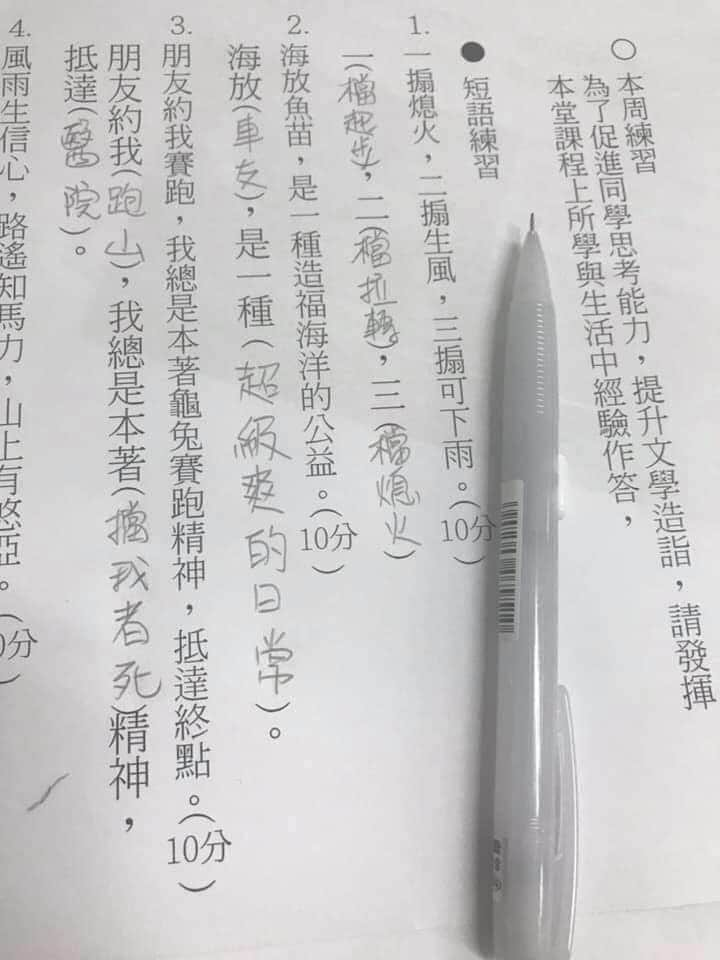 ○ 本周練習
為了促進同學思考能力，提升文學造詣，請發揮
本堂課程上所學與生活中經驗作答，
● 短語練習
1. 一搧熄火，二搧生風，三搧可下雨。(10分)
一(檔起步)，二(檔拉轉)，三(檔熄火)
2. 海放魚苗，是一種造福海洋的公益。(10分)
海放(車友)，是一種(超級爽的日常)。
3. 朋友約我賽跑，我總是本著龜兔賽跑精神，抵達終點。(10分)
朋友約我(跑山)，我總是本著(擋我者死)精神，
抵達(醫院)。
4. 風雨生信心，路遙知馬力，山上有悠亞。(0分)